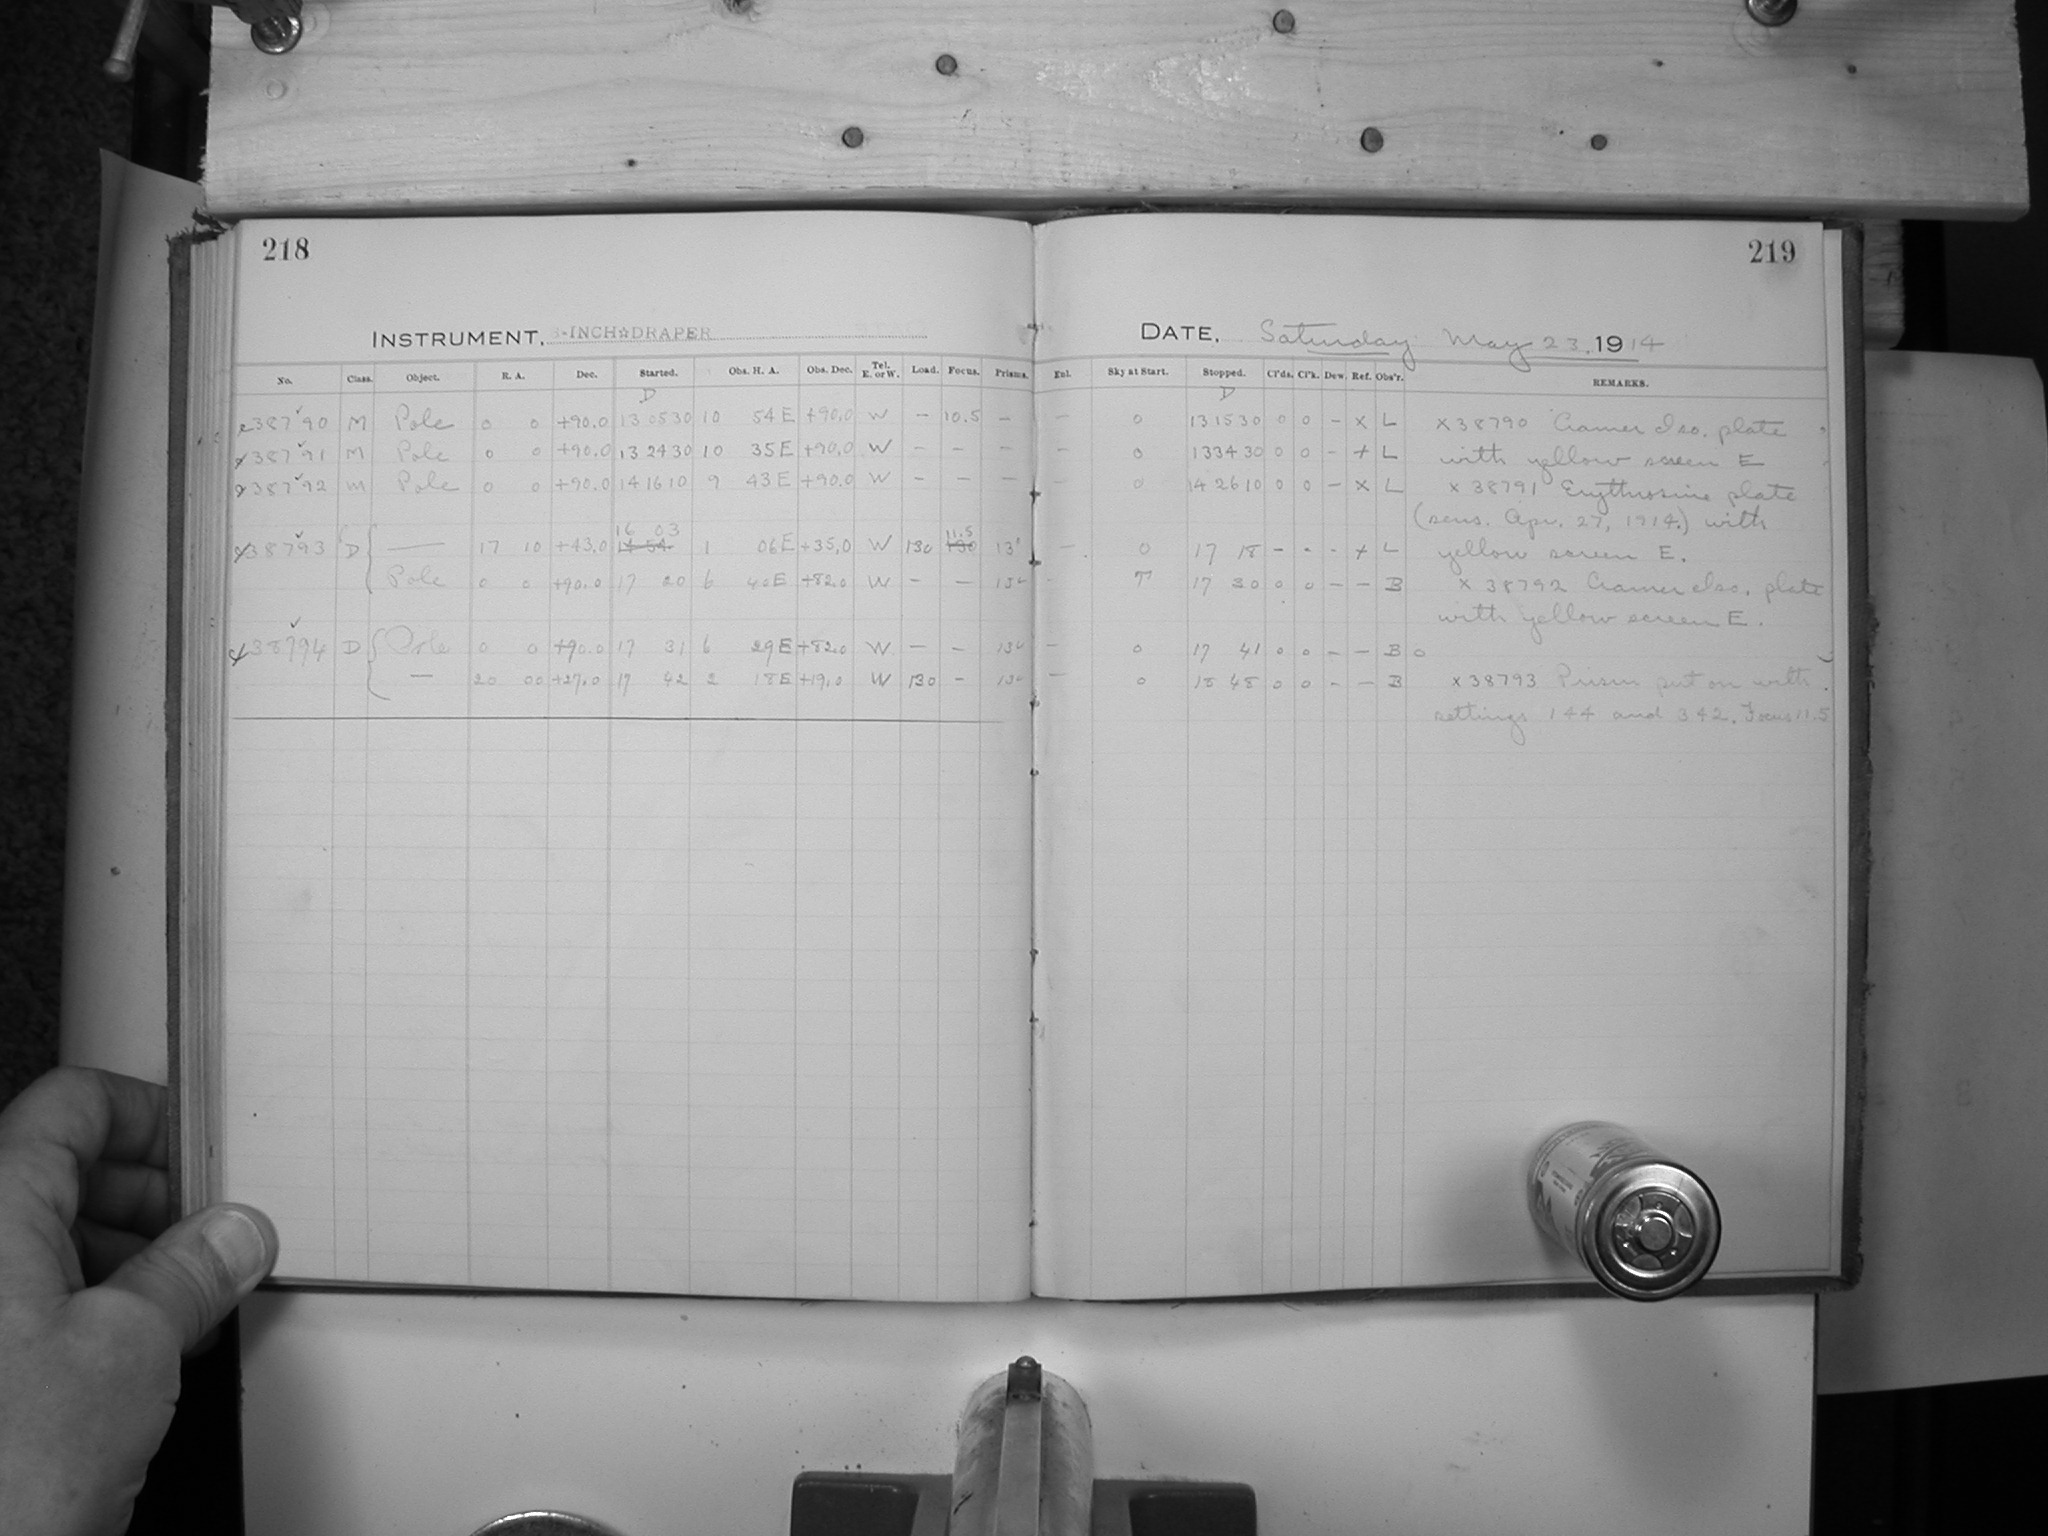 218
219
INSTRUMENT, 8-INCH☆DRAPER
DATE, Saturday May 23, 1914
No. Class. Object. R. A. Dec. Started. Obs. H. A. Obs. Dec. Tel. E. or W. Load. Focus. Prisms. Eul. Sky at Start. Stopped. Cl'ds. Cl'k. Dew. Ref. Obs'r. REMARKS.
D D
38790 M Pole 0 0 +90.0 13 05 30 10 54 E +90.0 W - 10.5 - - 0 13 15 30 0 0 - x L x 38790 Cramer Iso. plate
38791 M Pole 0 0 +90.0 13 24 30 10 35 E +90.0 W - - - - 0 13 34 30 0 0 - x L with yellow screen E
38792 M Pole 0 0 +90.0 14 16 10 9 43 E +90.0 W - - - - 0 14 26 10 0 0 - x L x 38791 Erythrosine plate
(sens. Apr. 27, 1914.) with
16 03 11.5
38793 D — 17 10 +43.0 14 54 1 06 E +35.0 W 130 130 13' - 0 17 18 - - - x L yellow screen E.
Pole 0 0 +90.0 17 20 6 40 E +82.0 W - - 13' - 17 30 0 0 - - B x 38792 Cramer Iso. plate
with yellow screen E.
38794 D Pole 0 0 +90.0 17 31 6 29 E +82.0 W - - 13' - 0 17 41 0 0 - - B 0
— 20 00 +27.0 17 42 2 18 E +19.0 W 130 - 13' - 0 18 48 0 0 - - B x 38793 Prism put on with
settings 144 and 342. Focus 11.5